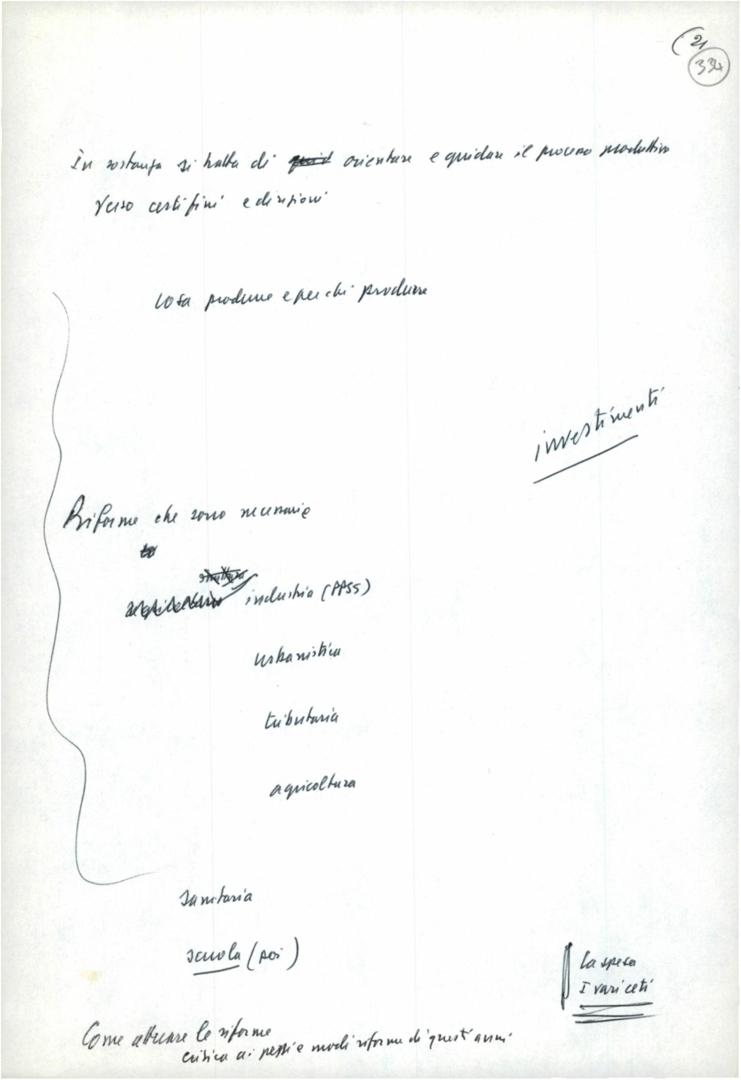 (21
334
In sostanza si tratta di orientare e guidare il processo produttivo
verso certi fini e direzioni
cosa produrre e per chi produrre
investimenti
Riforme che sono necessarie
industria (PPSS)
urbanistica
tributaria
agricoltura
sanitaria
scuola (poi)
La spesa
I vari ceti
Come attuare le riforme
critica ai pezzi e modi riforme di questi anni